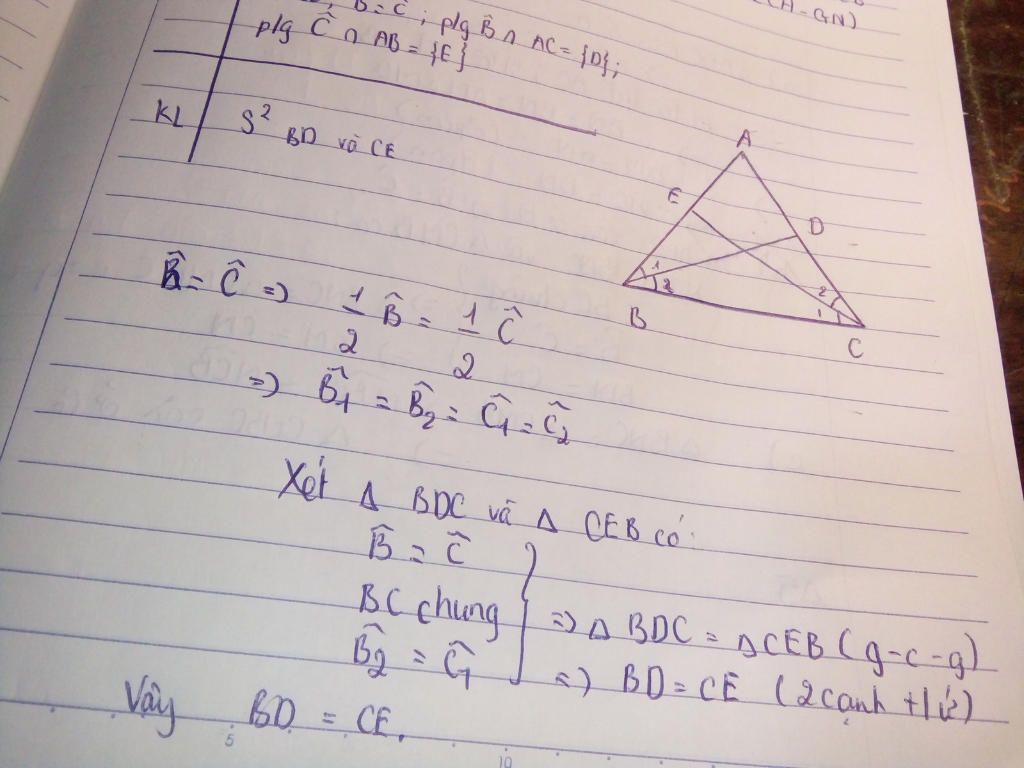 B̂ = Ĉ ; p/g B̂ ∩ AC = {D};
p/g Ĉ ∩ AB = {E}
KL S² BD và CE
A
E
D
1
2
2
1
B
C
B̂ = Ĉ => 1/2 B̂ = 1/2 Ĉ
=> B̂₁ = B̂₂ = Ĉ₁ = Ĉ₂
Xét Δ BDC và Δ CEB có:
B̂ = Ĉ
BC chung
B̂₂ = Ĉ₁
=> Δ BDC = Δ CEB (g-c-g)
=> BD = CE (2 cạnh t/ứ)
Vậy BD = CE.
5
10